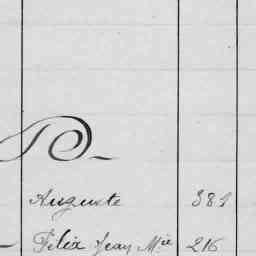 P
Auguste 389
Félix Jean M.ie 216